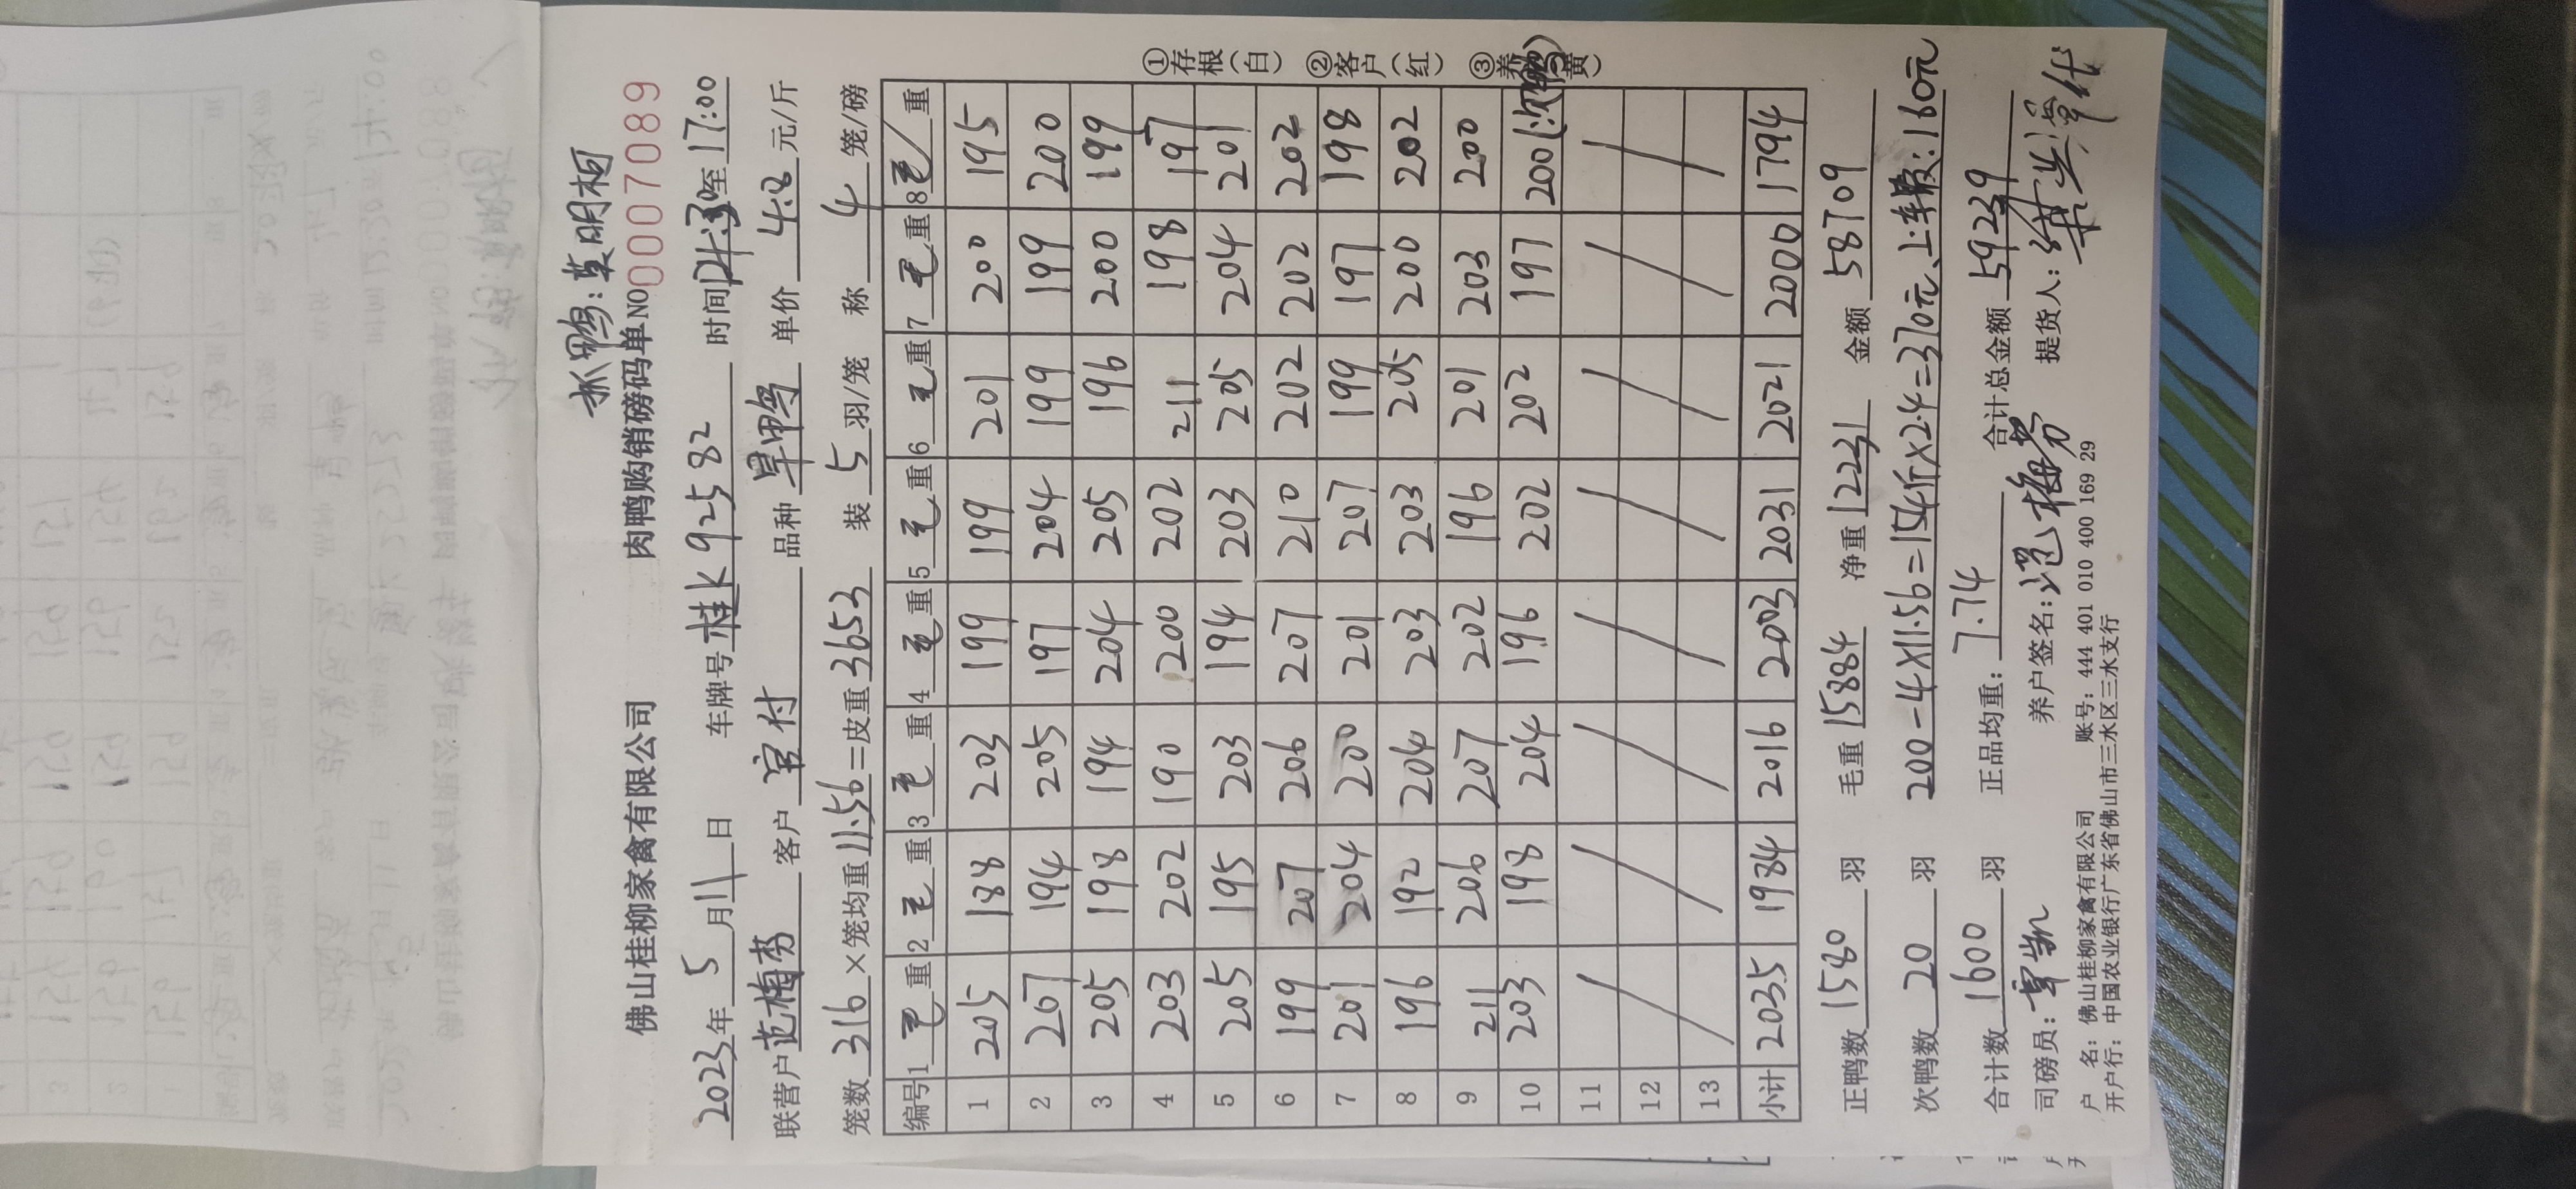 抓鸭：莫明柏
佛山桂柳家禽有限公司 肉鸭购销磅码单 NO 0007089
2023年 5 月 11 日 车牌号 桂K92582 时间 至 17:00
联营户 范梅芬 客户 官付 品种 旱鸭 单价 4.8 元/斤
笼数 316 ×笼均重 11.56 =皮重 3653 装 5 羽/笼 称 4 笼/磅
编号 1 毛 重 2 毛 重 3 毛 重 4 毛 重 5 毛 重 6 毛 重 7 毛 重 8 毛 重
1 205 188 203 199 199 201 200 195
2 207 194 205 197 204 199 199 200
3 205 198 194 204 205 196 200 199
4 203 202 190 200 202 211 198 197
5 205 195 203 194 203 205 204 201
6 199 207 206 207 210 202 202 202
7 201 204 200 201 207 199 197 198
8 196 192 204 203 203 205 200 202
9 211 206 207 202 196 201 203 200
10 203 198 204 196 202 202 197 200(次鸭)
11
12
13
小计 2035 1984 2016 2003 2031 2021 2000 1794
①存根(白) ②客户(红) ③养 黄)
正鸭数 1580 羽 毛重 15884 净重 12231 金额 58709
次鸭数 20 羽 200-4×11.56=154斤×2.4=370元、上车 :160元
合计数 1600 羽 正品均重: 7.74 合计总金额 59239
司磅员: 养户签名: 范梅芬 提货人:
户 名: 佛山桂柳家禽有限公司 账号: 444 401 010 400 169 29
开户行: 中国农业银行广东省佛山市三水区三水支行